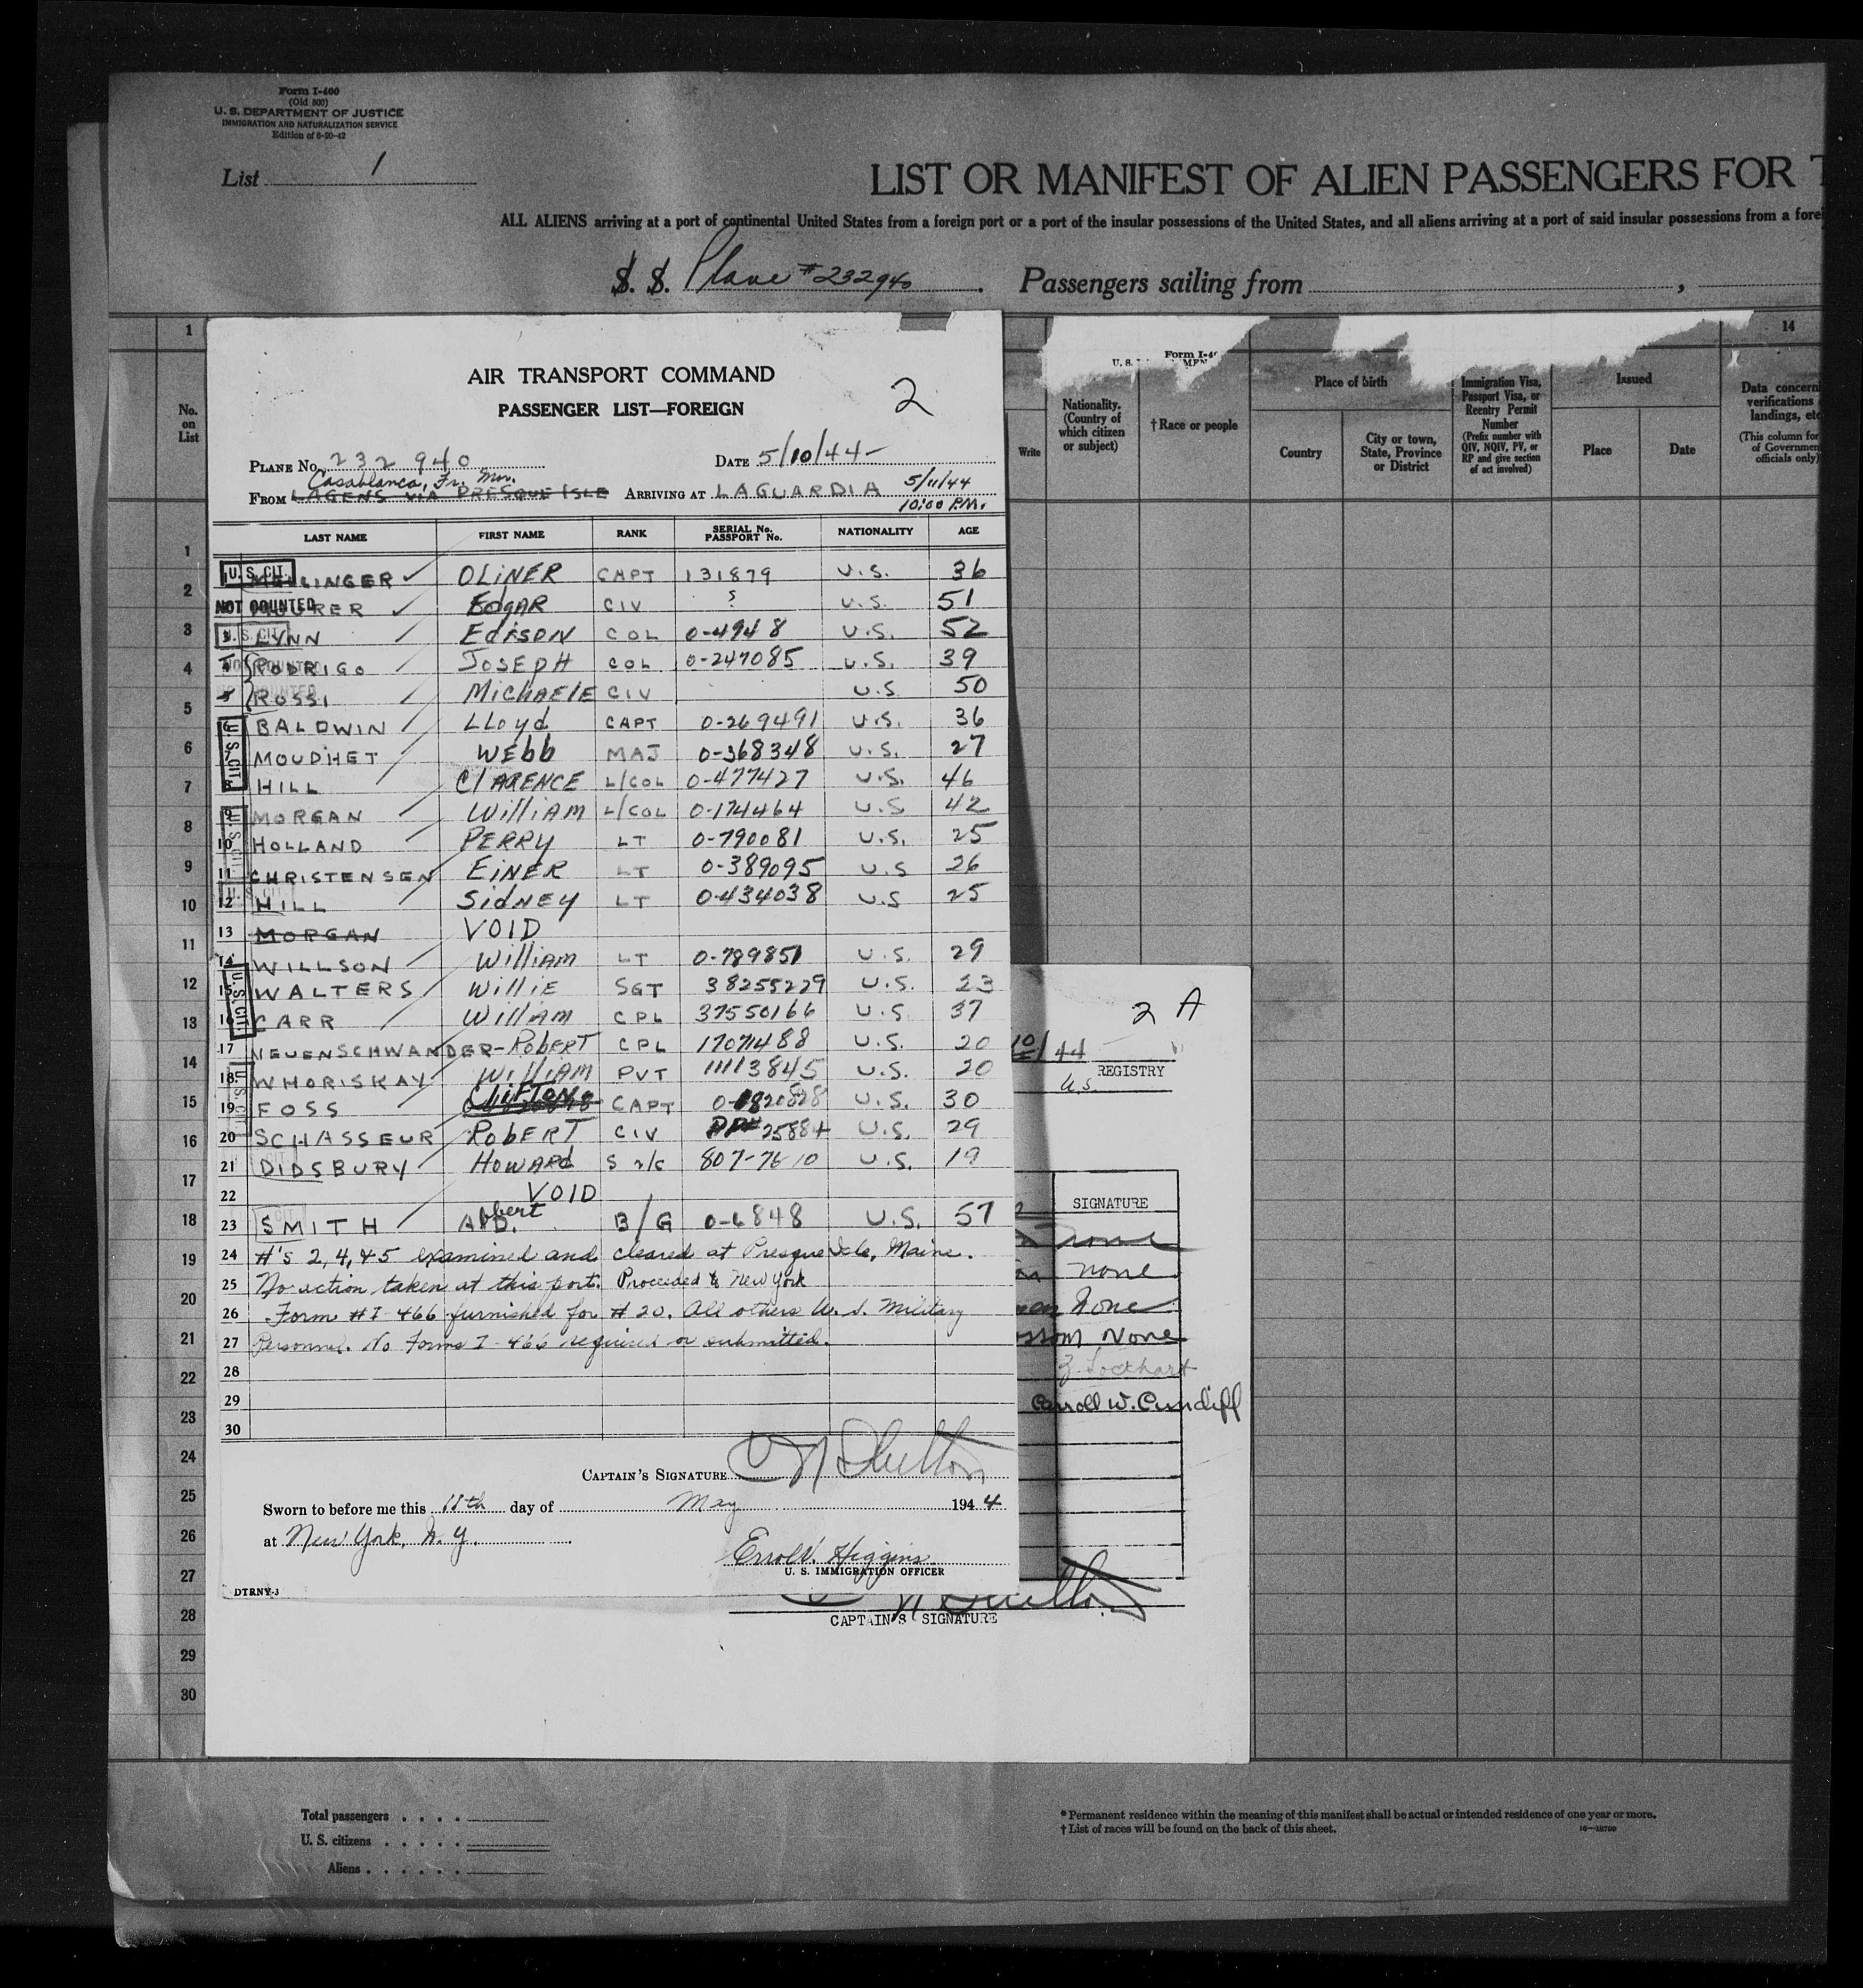 Form I-400
(Old 500)
U. S. DEPARTMENT OF JUSTICE
IMMIGRATION AND NATURALIZATION SERVICE
Edition of 6-20-42
List 1
LIST OR MANIFEST OF ALIEN PASSENGERS FOR T
ALL ALIENS arriving at a port of continental United States from a foreign port or a port of the insular possessions of the United States, and all aliens arriving at a port of said insular possessions from a forei
S. S. Plane #232940. Passengers sailing from ,
AIR TRANSPORT COMMAND
PASSENGER LIST—FOREIGN
2
PLANE No. 232 940 DATE 5/10/44-
Casablanca, Fr. Mor.
FROM LAGENS VIA PRESQUE ISLE ARRIVING AT LAGUARDIA 5/11/44
10:00 P.M.
LAST NAME FIRST NAME RANK SERIAL No. PASSPORT No. NATIONALITY AGE
U.S. CIT. OLINER CAPT 131879 U.S. 36
NOT COUNTED EdgAR CIV ? U.S. 51
3 LYNN EdisoN COL 0-4948 U.S. 52
4 RODRIGO JOSEPH COL 0-247085 U.S. 39
5 ROSSI MichAElE CIV U.S 50
6 BALDWIN LLoyd CAPT 0-269491 U.S. 36
7 MOUDHET WEbb MAJ 0-368348 U.S. 27
8 HILL ClARENCE L/COL 0-477427 U.S. 46
9 MORGAN William L/COL 0-174464 U.S 42
10 HOLLAND PERRY LT 0-790081 U.S. 25
11 CHRISTENSEN EiNER LT 0-389095 U.S 26
12 HILL SidNEY LT 0-434038 U.S 25
13 MORGAN VOID
14 WILLSON William LT 0-789851 U.S. 29
15 WALTERS WilliE SGT 38255229 U.S. 23
16 CARR William CPL 37550166 U.S 37
17 NEUENSCHWANDER-RobERT CPL 17071488 U.S. 20
18 WHORISKAY William PVT 11113845 U.S. 20
19 FOSS CliFTON CAPT 0-1820828 U.S. 30
20 SCHASSEUR RobERT CIV PP# 25884 U.S. 29
21 DIDSBURY HowARd S 2/c 807-7610 U.S. 19
22 VOID
23 SMITH Albert D. B/G 0-6848 U.S. 57
24 #'s 2, 4, & 5 examined and cleared at Presque Isle, Maine.
25 No action taken at this port. Proceeded to New York
26 Form #I-466 furnished for #20. All others U. S. Military
27 Personnel. No Forms I-466 required or submitted.
28
29
30
CAPTAIN'S SIGNATURE
Sworn to before me this 11th day of May 1944
at New York, N. Y.
Errol V. Higgins
U. S. IMMIGRATION OFFICER
DTRNY-3
U. S. CIT.
1
No. on List
1
2
3
4
5
6
7
8
9
10
11
12
13
14
15
16
17
18
19
20
21
22
23
24
25
26
27
28
29
30
Form I-4
U. S.
Write
Nationality. (Country of which citizen or subject)
†Race or people
Place of birth
Country
City or town, State, Province or District
Immigration Visa, Passport Visa, or Reentry Permit Number
(Prefix number with QIV, NQIV, PV, or RP and give section of act involved)
Issued
Place
Date
14
Data concerni
verifications
landings, etc
(This column for
of Governmen
officials only)
2 A
10/44
REGISTRY
U.S.
SIGNATURE
none
none
None
None
Lockhart
Carroll W. Cundiff
CAPTAIN'S SIGNATURE
Total passengers
U. S. citizens
Aliens
*Permanent residence within the meaning of this manifest shall be actual or intended residence of one year or more.
†List of races will be found on the back of this sheet.
16—18700